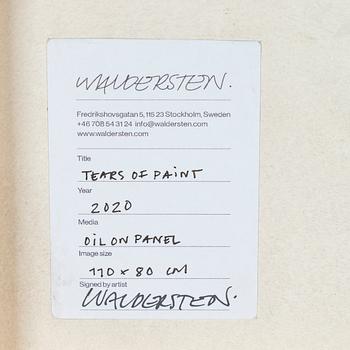 WALDERSTEN.
Fredrikshovsgatan 5, 115 23 Stockholm, Sweden
+46 708 54 31 24 info@waldersten.com
www.waldersten.com
Title
TEARS OF PAINT
Year
2020
Media
OIL ON PANEL
Image size
110 x 80 CM
Signed by artist
WALDERSTEN.